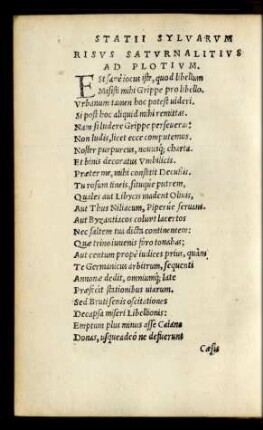 STATII SYLVARVM
RISVS SATVRNALITIVS
AD PLOTIVM.
EStsanè iocus iste, quod libellum
Misisti mihi Grippe pro libello.
Vrbanum tamen hoc potest uideri.
Si post hoc aliquid mihi remittas.
Nam si ludere Grippe perseueras:
Non ludis, licet ecce computemus.
Noster purpureus, nouusq; charta.
Et binis decoratus Vmbilicis.
Præter me, mihi constitit Decußis.
Tu rosum tineis, situque putrem,
Quales aut Libycis madent Oliuis,
Aut Thus Niliacum, Piperue seruant.
Aut Byzantiacos colunt lacertos
Nec saltem tua dicta continentem:
Quæ trino iuuenis foro tonabas;
Aut centum propè iudices prius, quàm
Te Germanicus arbitrum, sequenti
Annonæ dedit, omniumq; late
Præfecit stationibus uiarum.
Sed Bruti senis oscitationes
Decapsa miseri Libellionis:
Emptum plus minus asse Caiano
Donas, usqueadeò ne defuerunt
Cæsis